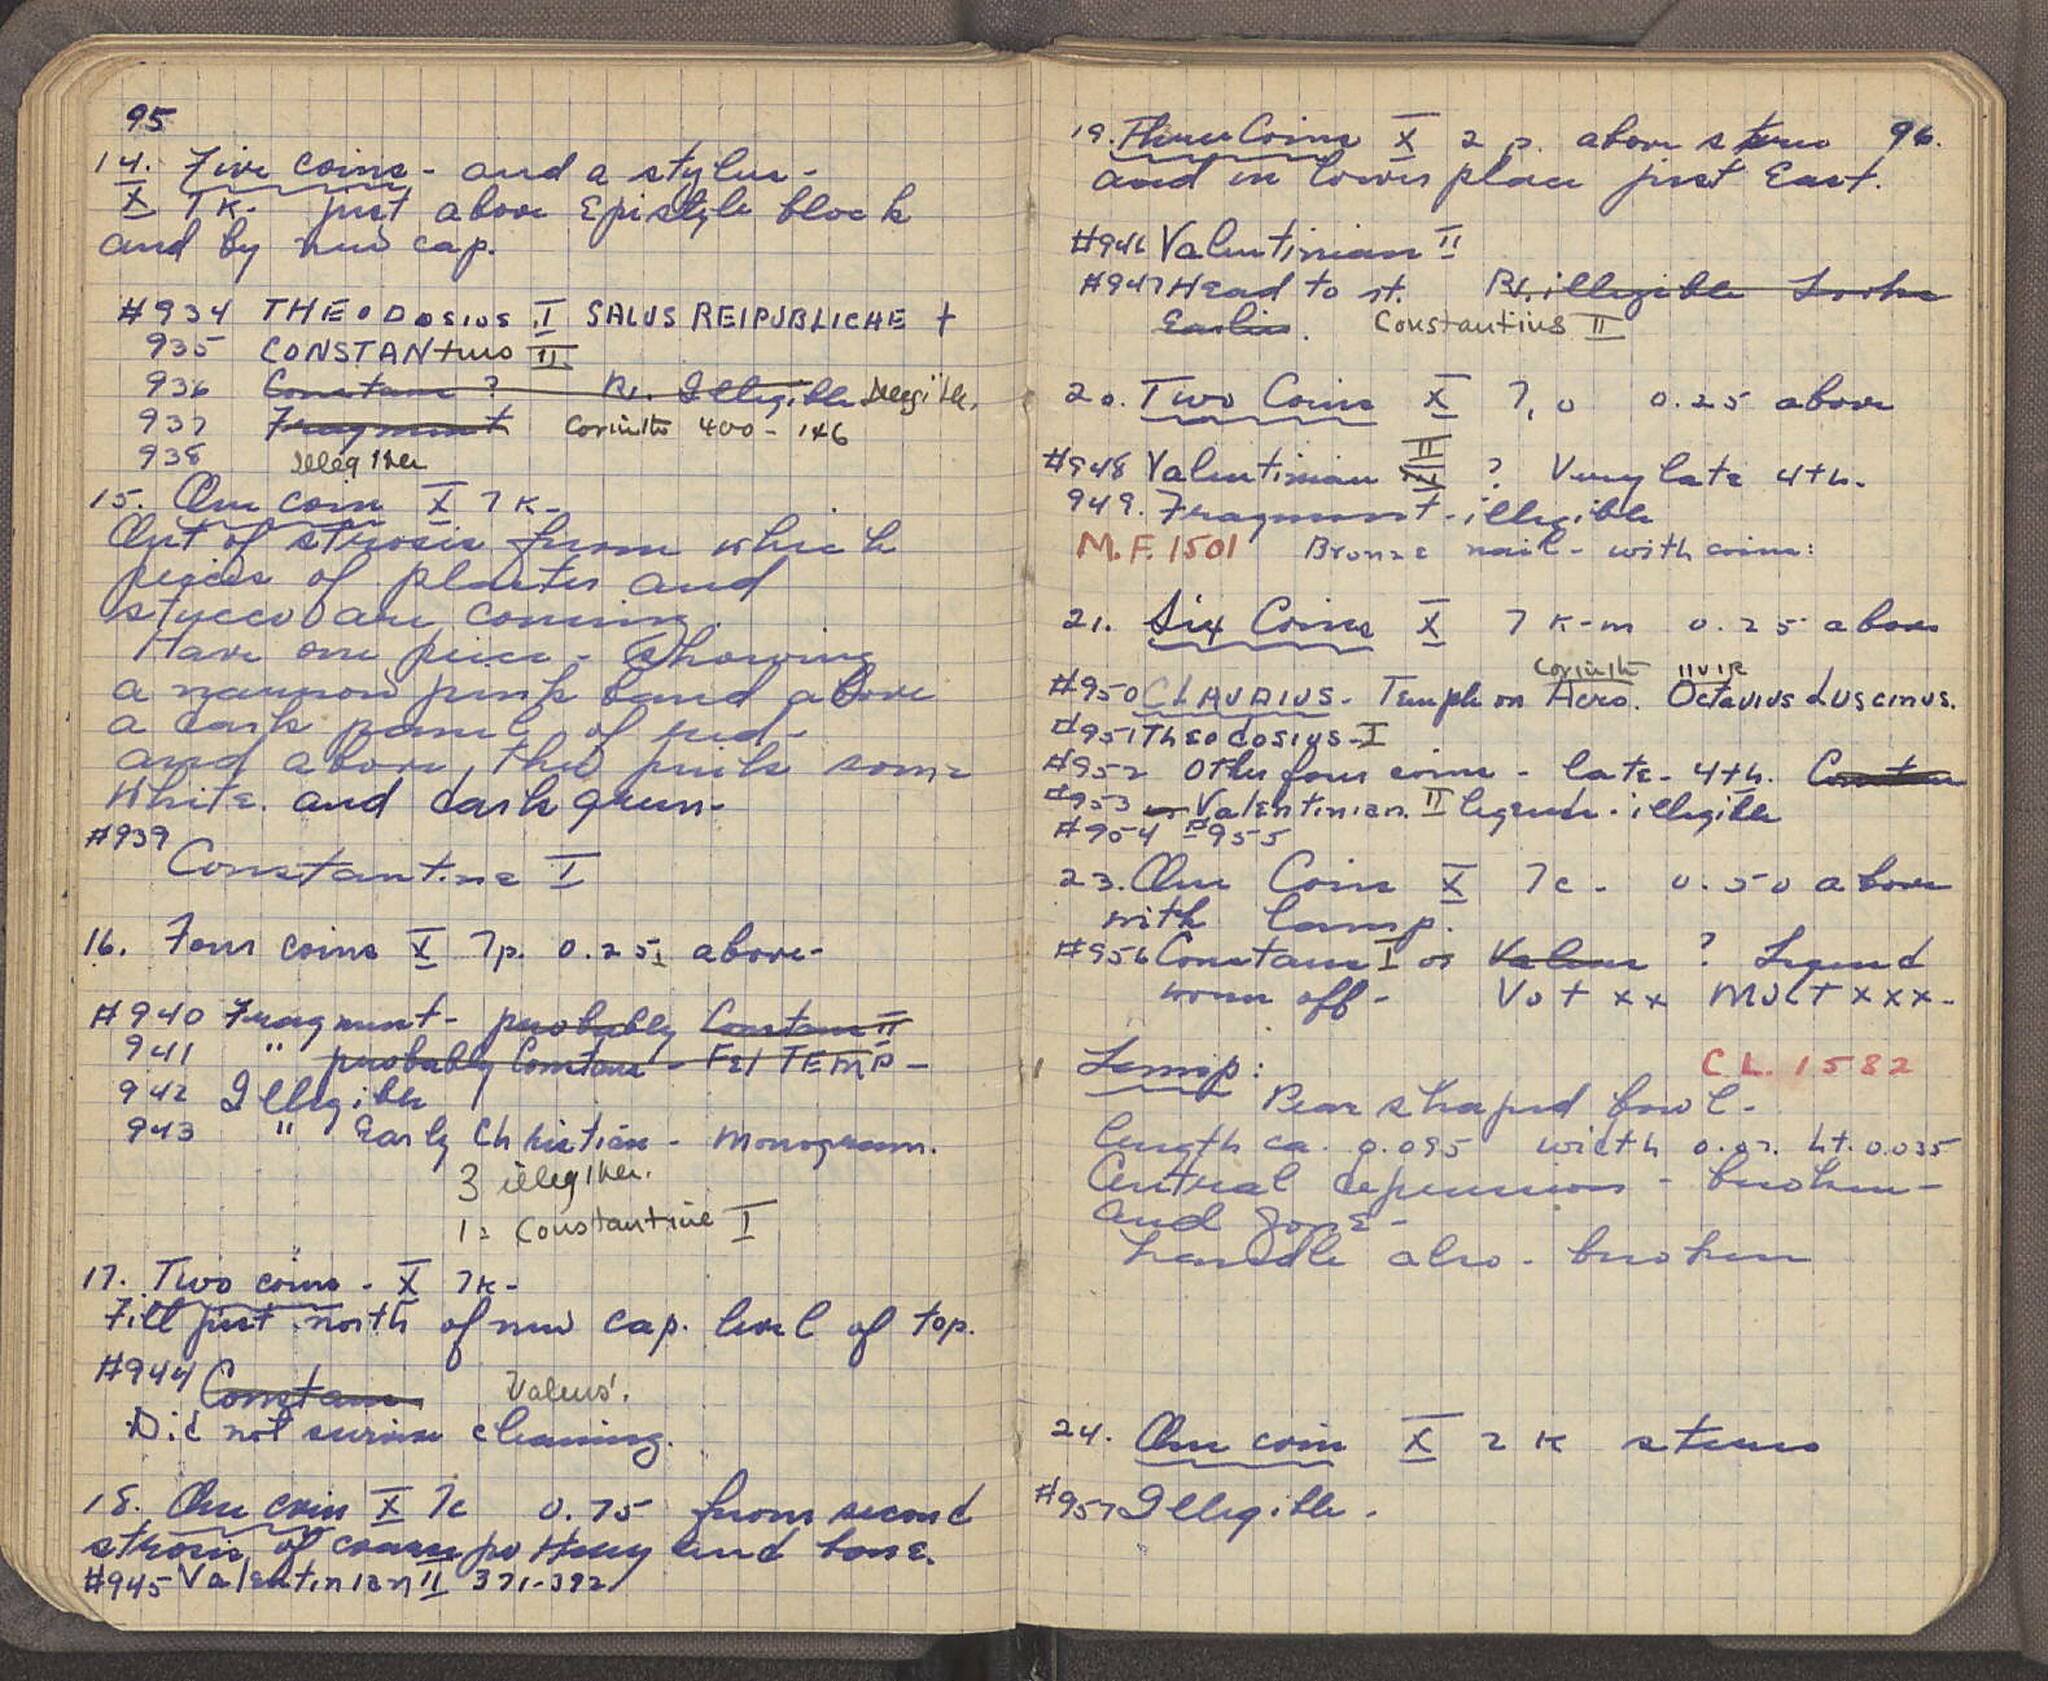 95
14. Five coins - and a stylus -
X 7K- just above Epistyle block
and by new cap.
#934 THEODOSIUS I SALUS REIPUBLICHE +
935 CONSTANtius II
936 Constans ? Rv. Illegible Illegible.
937 Fragment Corinth 400-146
938 Illegible
15. One coin X 7K-
Out of strosis from which
peices of plaster and
stucco are coming.
Have one peice - showing
a narrow pink band above
a dark panel of red -
and above the pink some
white. and dark green -
#939
Constantine I
16. Four coins X 7p. 0.25 above -
#940 Fragment - probably Constans II
941 " probably Constans - FEI TEMP -
942 Illegible
943 " Early Christian - monogram.
3 illegible.
1 = Constantine I
17. Two coins - X 7K-
Fill just north of new cap. level of top.
#944 Constans Valens'.
Did not survive cleaning.
18. One coin X 7c 0.75 from second
strosis of coarse pottery and bone.
#945 Valentinian II 371-392
19. Three Coins X 2 p. above stereo 96.
and in lower place just East.
#946 Valentinian II
#947 Head to rt. Rv. illegible Looks
Earlier. Constantius II
20. Two Coins X 7, o 0.25 above
II
#948 Valentinian III ? Very late 4th.
949. Fragment - illegible
M.F. 1501 Bronze nail - with coins:
21. Six Coins X 7 K-m 0.25 above
Corinth IIVIR
#950 CLAUDIUS - Temple on Acro. Octavius Luscinus.
#951 Theodosius - I
#952 Other four coins - late - 4th. Constans
#953 or Valentinian II legends - illegible
#954 #955
23. One Coin X 7c - 0.50 above
with lamp.
#956 Constans I or Valens ? Legend
worn off - Vot xx Mult xxx -
Lamp: C L. 1582
Pear shaped bowl -
length ca. 0.095 width 0.07. ht. 0.035
Central depression - broken -
and gone -
handle also - broken
24. One coin X 2 K stereo
#957 Illegible -